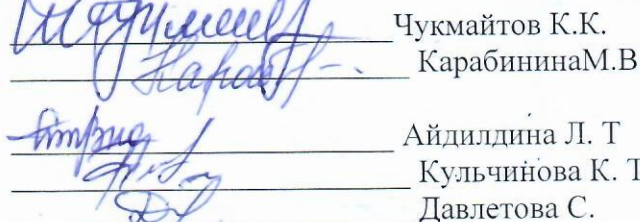 Чукмайтов К.К.
КарабининаМ.В
Айдилдина Л. Т
Кульчинова К. Т
Давлетова С.